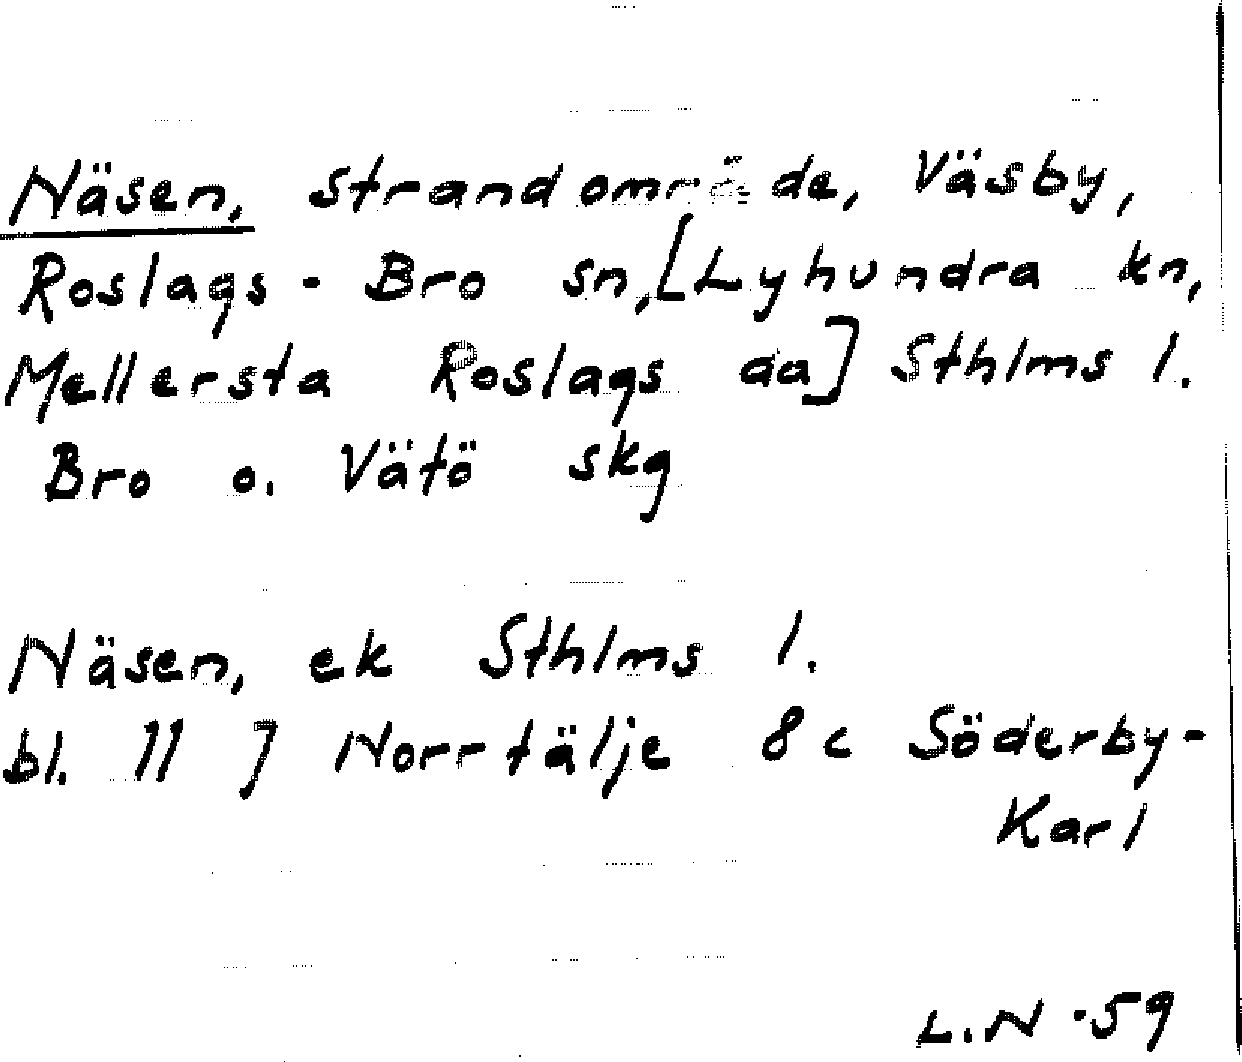 Näsen, strandområde, Väsby,
Roslags-Bro sn, [Lyhundra kn,
Mellersta Roslags da] Sthlms l.
Bro o. Vätö skg
Näsen, ek Sthlms l.
bl. 11 J Norrtälje 8c Söderby-
Karl
L.N -59